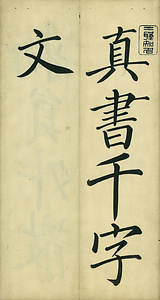 真書千字
文